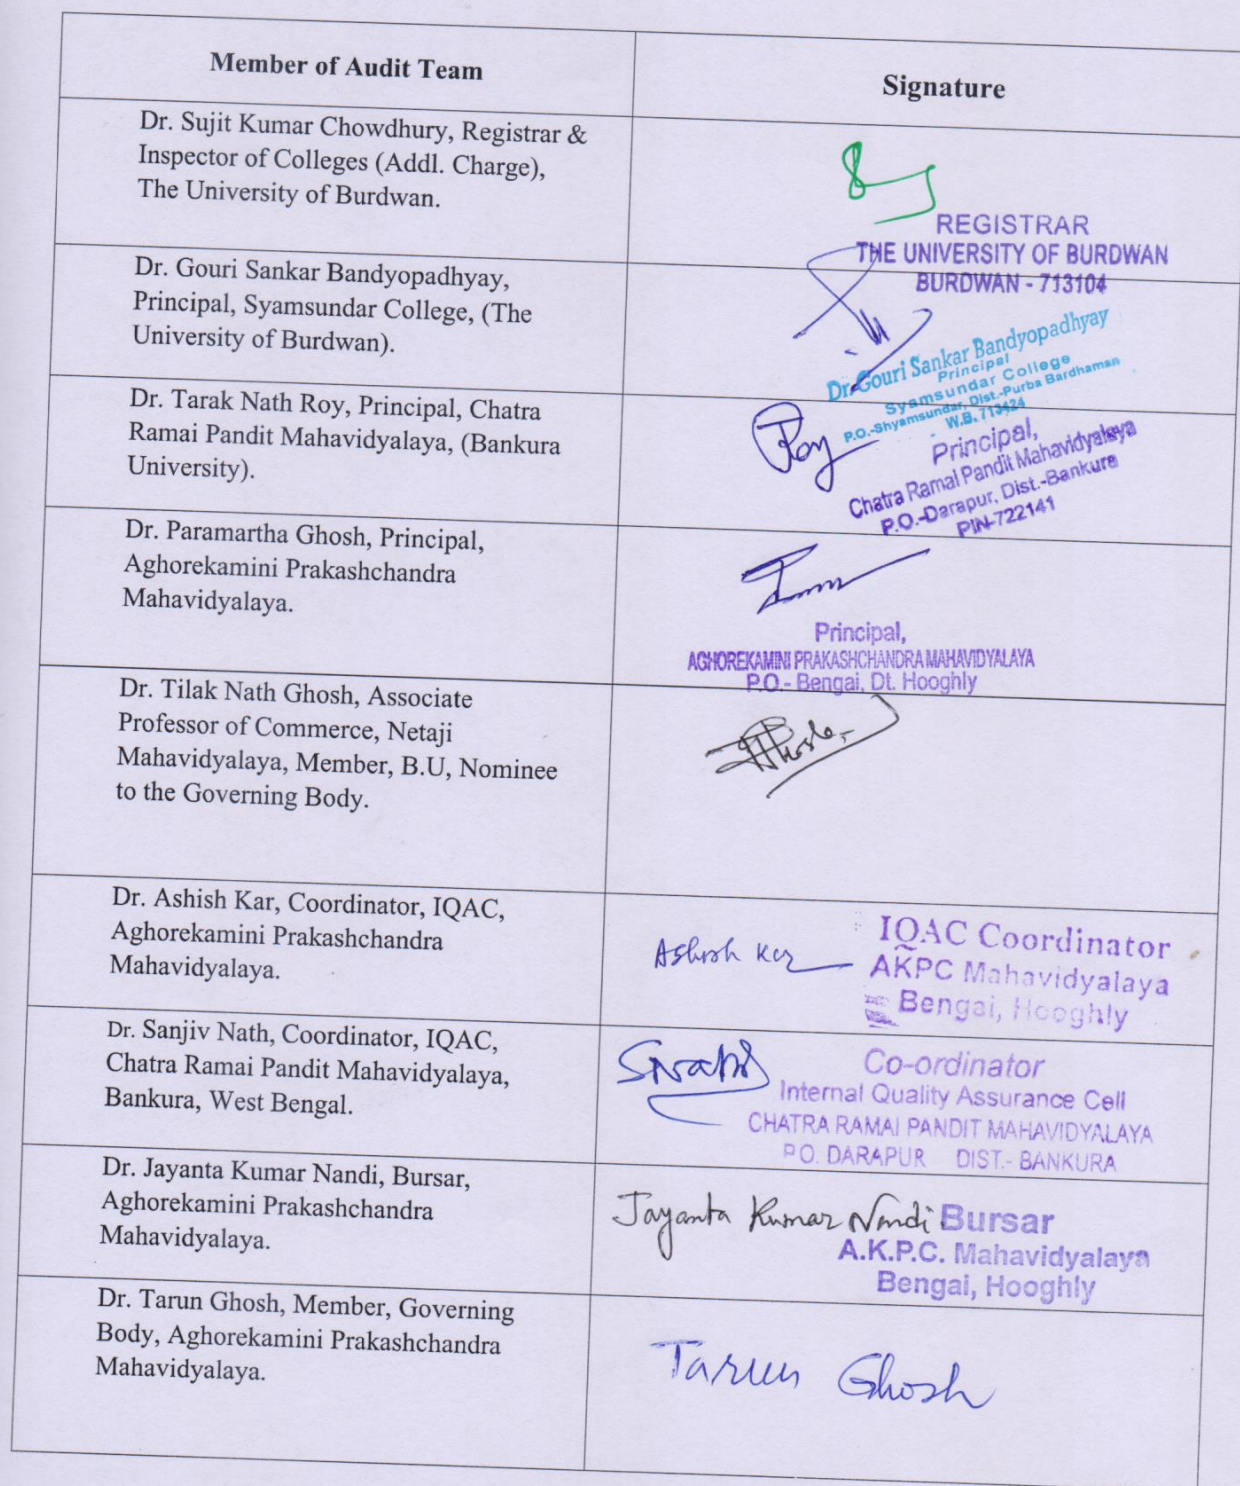 Member of Audit Team
Signature
Dr. Sujit Kumar Chowdhury, Registrar &
Inspector of Colleges (Addl. Charge),
The University of Burdwan.
REGISTRAR
THE UNIVERSITY OF BURDWAN
BURDWAN - 713104
Dr. Gouri Sankar Bandyopadhyay,
Principal, Syamsundar College, (The
University of Burdwan).
Dr. Gouri Sankar Bandyopadhyay
Principal
Syamsundar College
P.O.-Shyamsundar, Dist.-Purba Bardhaman
W.B. 713424
Dr. Tarak Nath Roy, Principal, Chatra
Ramai Pandit Mahavidyalaya, (Bankura
University).
Roy
Principal,
Chatra Ramai Pandit Mahavidyalaya
P.O.-Darapur, Dist.-Bankura
PIN-722141
Dr. Paramartha Ghosh, Principal,
Aghorekamini Prakashchandra
Mahavidyalaya.
Principal,
AGHOREKAMINI PRAKASHCHANDRA MAHAVIDYALAYA
P.O.- Bengai, Dt. Hooghly
Dr. Tilak Nath Ghosh, Associate
Professor of Commerce, Netaji
Mahavidyalaya, Member, B.U, Nominee
to the Governing Body.
Dr. Ashish Kar, Coordinator, IQAC,
Aghorekamini Prakashchandra
Mahavidyalaya.
Ashish Kar
IQAC Coordinator
AKPC Mahavidyalaya
Bengai, Hooghly
Dr. Sanjiv Nath, Coordinator, IQAC,
Chatra Ramai Pandit Mahavidyalaya,
Bankura, West Bengal.
SNath
Co-ordinator
Internal Quality Assurance Cell
CHATRA RAMAI PANDIT MAHAVIDYALAYA
P.O. DARAPUR DIST.- BANKURA
Dr. Jayanta Kumar Nandi, Bursar,
Aghorekamini Prakashchandra
Mahavidyalaya.
Jayanta Kumar Nandi
Bursar
A.K.P.C. Mahavidyalaya
Bengai, Hooghly
Dr. Tarun Ghosh, Member, Governing
Body, Aghorekamini Prakashchandra
Mahavidyalaya.
Tarun Ghosh